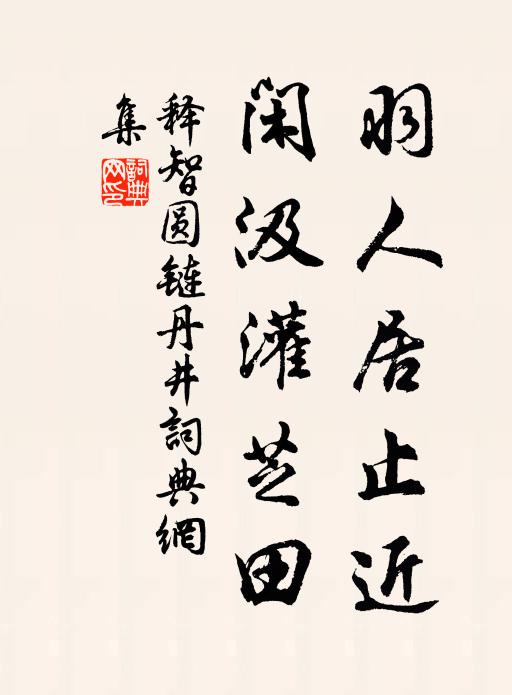 羽人居止近
闲汲灌芝田
释智圆链丹井詞典網
集
詞典網印